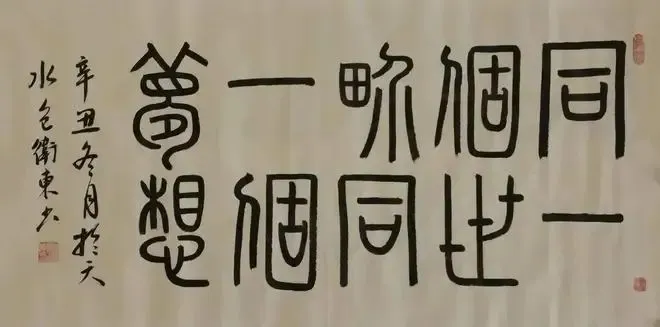 同一
個世
界同
一個
夢想
辛丑冬月於天
水包衛東書